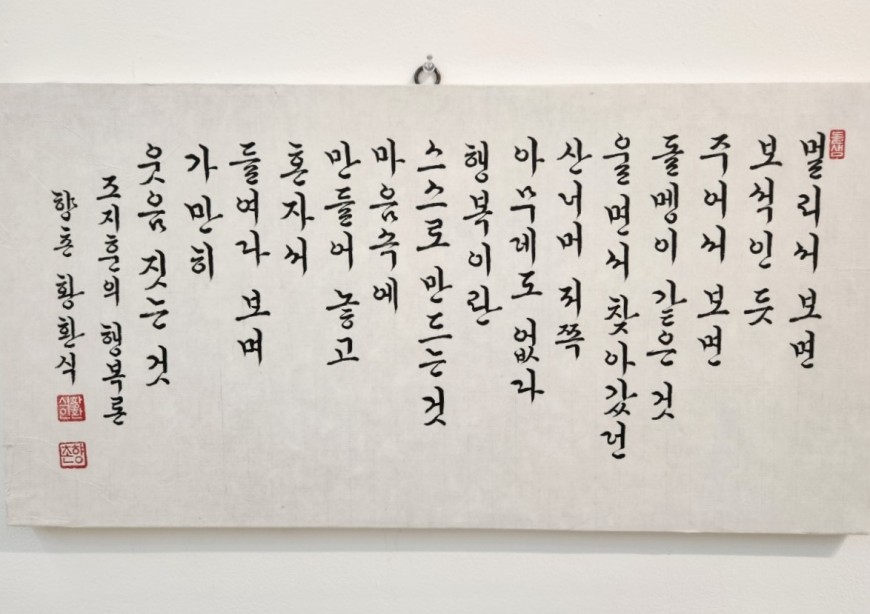 멀리서 보면
보석인 듯
주어서 보면
돌멩이 같은 것
울면서 찾아갔던
산너머 저쪽
아무데도 없다
행복이란
스스로 만드는 것
마음속에
만들어 놓고
혼자서
들여다 보며
가만히
웃음 짓는 것
조지훈의 행복론
향촌 황환식